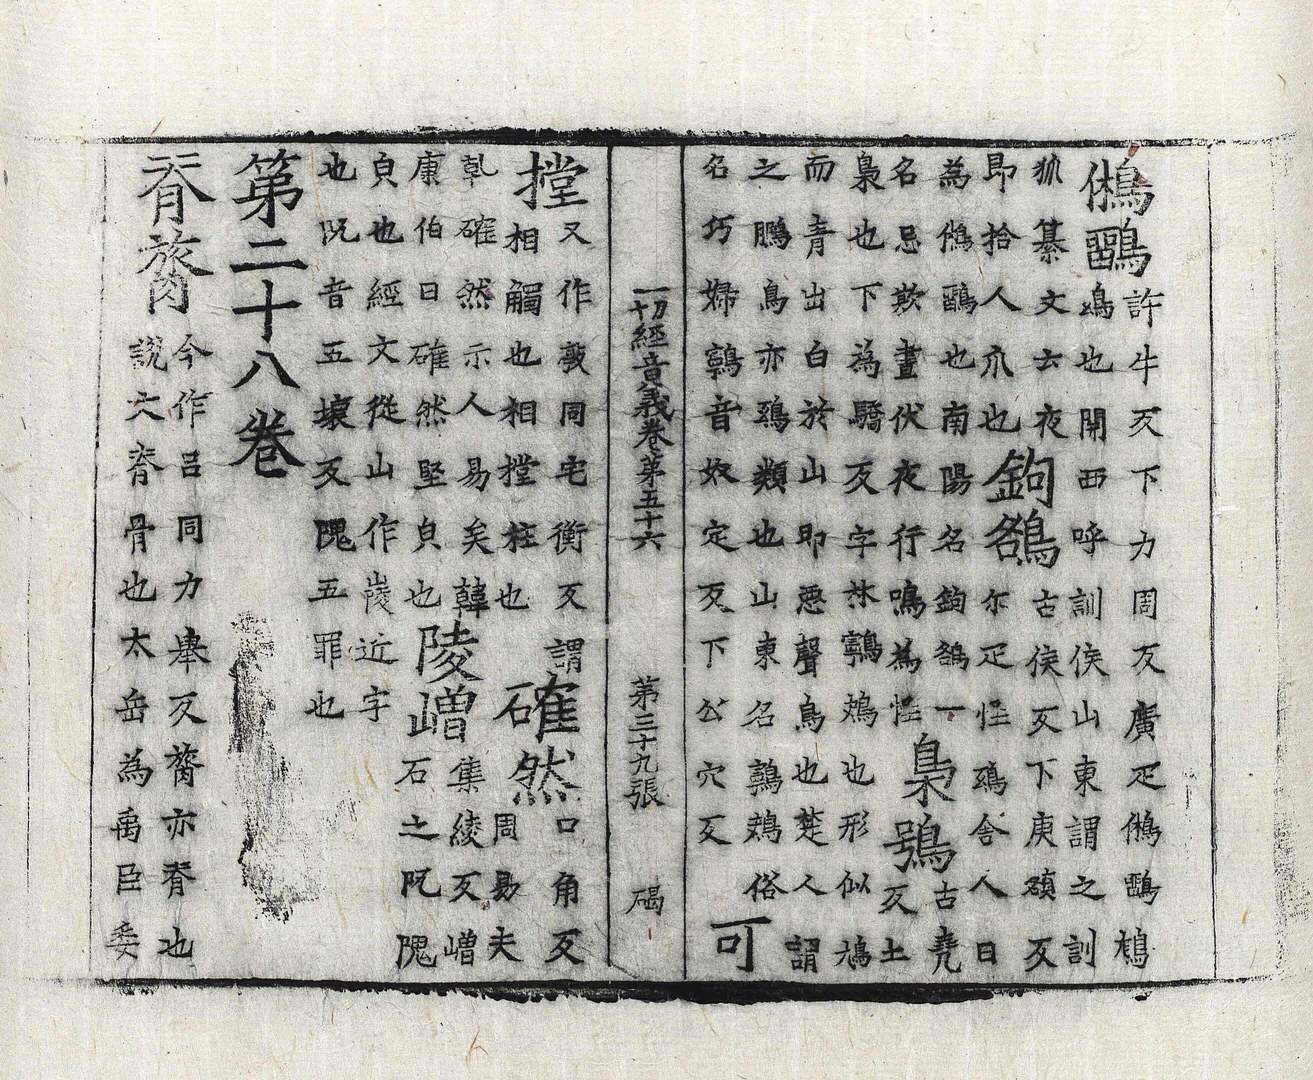 鵂鶹許牛反下力周反廣疋鵂鶹
鴟也關西呼訓侯山東謂之訓
狐纂文云夜
即拾人爪也
鉤鵅古侯反下庚頟反
尒疋恠鴟舍人曰
為鵂鶹也南陽名鉤鵅一
名忌欺晝伏夜行鳴為恠
梟鴞古堯
反土
梟也下為驕反字林鸋鴂也形似鴆
而青出白於山即惡聲鳥也楚人謂
之鵩鳥亦鴞類也山東名鸋鴂俗
名巧婦鸋音奴定反下公穴反
可
一切經音義卷第五十六 第三十九張 碣
摚又作敹同宅衡反謂
相觸也相摚柱也
確然口角反
周易夫
乹確然示人易矣韓
康伯曰確然堅貞也
陵嶒集綾反嶒
石之阮隗
皃也經文從山作崚近字
也阮音五壞反隗五罪也
第二十八卷
脊膂今作呂同力舉反膂亦脊也
說文脊骨也太岳為禹臣委